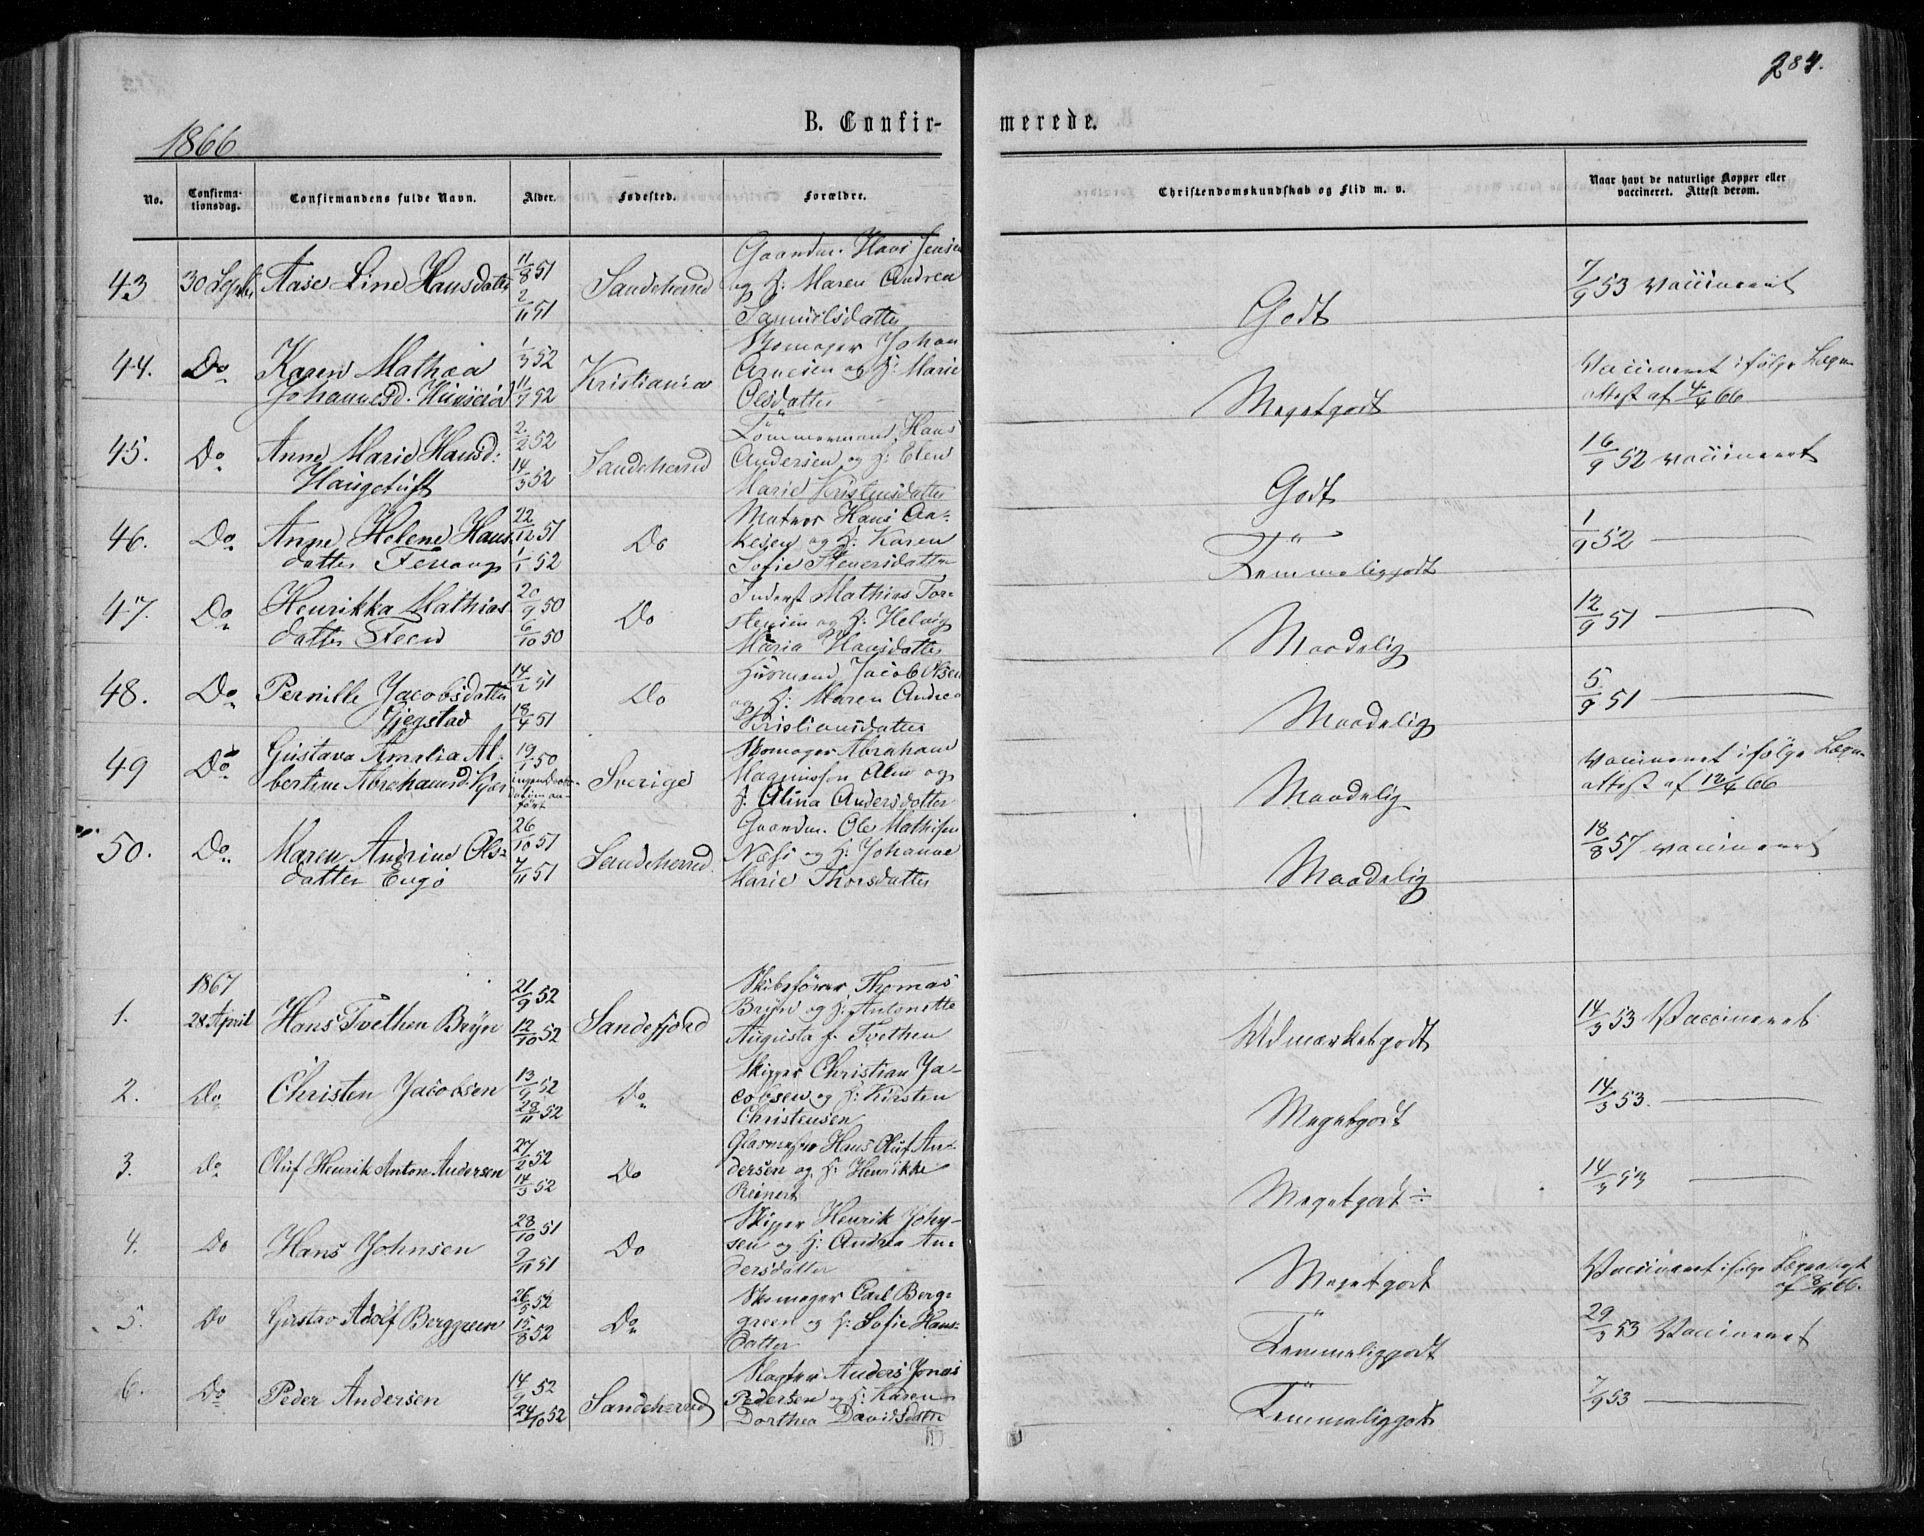 284.
B. Confir- merede.
1866
No. Confirma-tionsdag. Confirmandens fulde Navn. Alder. Fødested. Forældre. Christendomskundskab og Flid m. v. Naar havt de naturlige Kopper eller vaccineret. Attest derom.
43 30 Septbr Aase Line Hansdatter 11/8 51 2/11 51 Sandeherred Gaardm. Hans Jensen og H: Maren Andrea Samuelsdatter Godt 7/9 53 vaccineret
44. Do Karen Mathea Johannesd. 1/3 52 11/4 52 Kristiania Skomager Johan Arnesen og H: Marie Olsdatter Megetgodt Vaccineret ifölge Læge-attest af 4/4 66
45. Do Anne Marie Hansd: Haugetuft 2/2 52 14/3 52 Sandeherred Tömmermand Hans Andersen og H: Elen Marie Kristensdatter Godt 16/9 52 vaccineret
46. Do Anne Helene Hans datter Fevang 22/12 51 1/1 52 Do Matros Hans Aa-kesen og H: Karen Sofie Siversdatter Temmeliggodt 1/9 52
47. Do Henrikka Mathias datter Feen 20/9 50 6/10 50 Do Inderst Mathias Tor-stensen og H: Helvig Maria Hansdatter Maadelig 12/9 51
48. Do Pernille Jacobsdatter Gjegstad 14/2 51 18/4 51 Do Husmand Jacob Olsen og H: Maren Andrea Kristiansdatter Maadelig 5/9 51
49 Do Gustava Amalia Al-bertine Abrahamsd. Kjær 19/1 50 Sverige Skomager Abraham Magnusson Alm og H. Alina Andersdatter Maadelig Vaccineret ifölge Læge-attest af 12/4 66
50. Do Maren Andrine Ols-datter Engø 26/10 51 7/11 51 Sandeherred Gaardm. Ole Mathisen Næss og H: Johanne Marie Thorsdatter Maadelig 18/8 57 vaccineret
1867
1. 28 April Hans Tvethen Bryn 21/9 52 12/10 52 Sandefjord Skibsfører Thomas Bryn og H: Antonette Augusta f. Tvethen Udmærketgodt 14/3 53 Vaccineret
2. Do Christen Jacobsen 13/9 52 28/11 52 Do Skipper Christian Ja-cobsen og H: Kirsten Christensen Megetgodt 14/3 53.
3. Do Oluf Henrik Anton Andersen 27/2 52 14/3 52 Do Glasmester Hans Oluf An-dersen og H: Henrikke Reinert Megetgodt ÷ 14/3 53
4. Do Hans Johnsen 28/10 51 9/11 51 Do Skipper Henrik John-sen og H: Andrea An-dersdatter Megetgodt Vaccineret ifølge Lægeattest af 8/11 66.
5. Do Gustav Adolf Berggreen 26/5 52 15/8 52 Do Skomager Carl Berg-green og H: Sofie Hans-datter Temmeliggodt 29/3 53 Vaccineret
6. Do Peder Andersen 14/9 52 24/10 52 Sandeherred Slagter Anders Jonas Pedersen og H: Karen Dorthea Davidsdatter Temmeliggodt 7/9 53